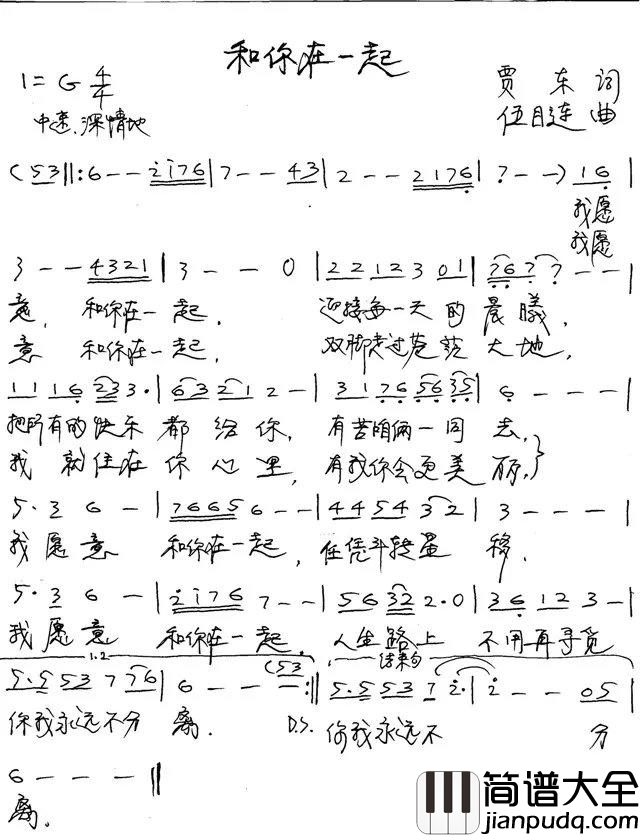 和你在一起
1=G 4/4
贾东词
中速、深情地
伍目连曲
(53‖:6--i̇i̇76|7--43|2--2176|7--)16|
我愿
我愿
3--4321|3--0|2212301|7677--|
意,和你在一起,迎接每一天的晨曦,
意 和你在一起,双脚走过苍茫大地,
1116233·|63212-|31765635|6---|
把所有的快乐都给你,有苦咱俩一同去,
我就住在你心里,有我你会更美丽,}
5·36-|76656--|445432|3---|
我愿意 和你在一起,任凭斗转星移.
5·36-|2̇i̇767--|56322·0|36123-|
我愿意 和你在一起.人生路上 不用再寻觅
1.2 结束句
5·5537776|6---(53:‖5·55372̇·|2̇--05|
你我永远不分离. D.S. 你我永远不 分
6---‖
离.
简谱大全
jianpudq.com